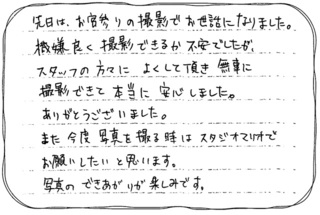 先日は、お宮参りの撮影でお世話になりました。
機嫌良く撮影できるか不安でしたが、
スタッフの方々によくして頂き無事に
撮影できて本当に安心しました。
ありがとうございました。
また今度写真を撮る時はスタジオマリオで
お願いしたいと思います。
写真のできあがりが楽しみです。